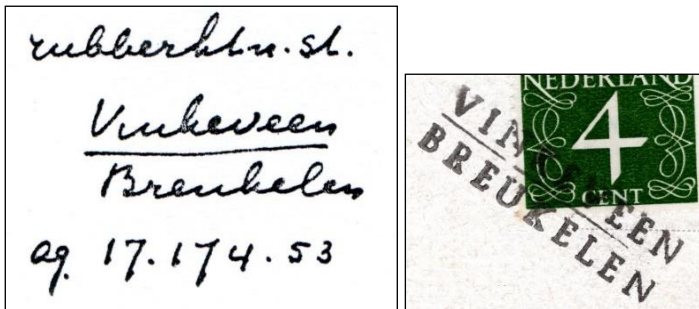 rubberktn.st.
Vinkeveen
Breukelen
ag. 17.174.53
NEDERLAND
4
CENT
VINKEVEEN
BREUKELEN